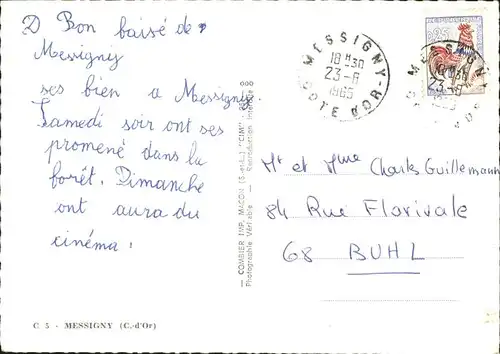 D Bon baisé de
Messigny
ses bien a Messigny.
Samedi soir ont ses
promené dans la
forêt. Dimanche
ont aura du
cinéma!
C 5 - MESSIGNY (C.-d'Or)
— COMBIER IMP. MACON (S.-et-L.) "CIM"
Photographie Véritable — Reproduction Interdite
MESSIGNY
18 H30
23-6
1965
COTE D'OR
0,25
MESSIGNY
18 H30
23-6
1965
Mr et Mme Charles Guillemann
84 Rue Florivale
68 BUHL